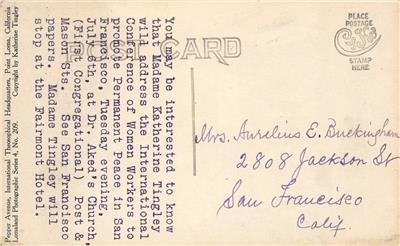 POST CARD
PLACE
POSTAGE
STAMP
HERE
You may be interested to know
that Madame Katherine Tingley
will address the International
Conference of Women Workers to
promote Permanent Peace in San
Francisco, Tuesday evening,
July 6th, at Dr. Aked's Church,
(First Congregational) Post &
Mason Sts. See San Francisco
papers. Madame Tingley will
stop at the Fairmont Hotel.
Pepper Avenue, International Theosophical Headquarters, Point Loma, California
Lomaland Photographic Series 4, No. 209. Copyright by Katherine Tingley
Mrs. Aurelius E. Buckingham
2808 Jackson St
San Francisco
Calif.